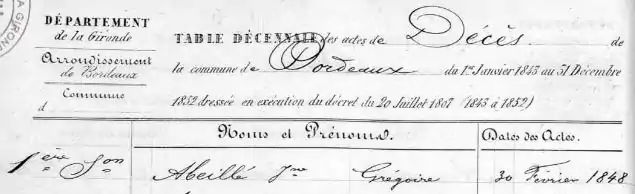 A GIRONDE
DÉPARTEMENT
de la Gironde
Arrondissement
de Bordeaux
Commune
d
TABLE DÉCENNALE des actes de Décès de
la commune de Bordeaux du 1er Janvier 1843 au 31 Décembre
1852 dressée en exécution du décret du 20 Juillet 1807 (1843 à 1852)
Noms et Prénoms. Dates des Actes.
1ère Son Abeillé Jne Grégoire 30 Février 1848